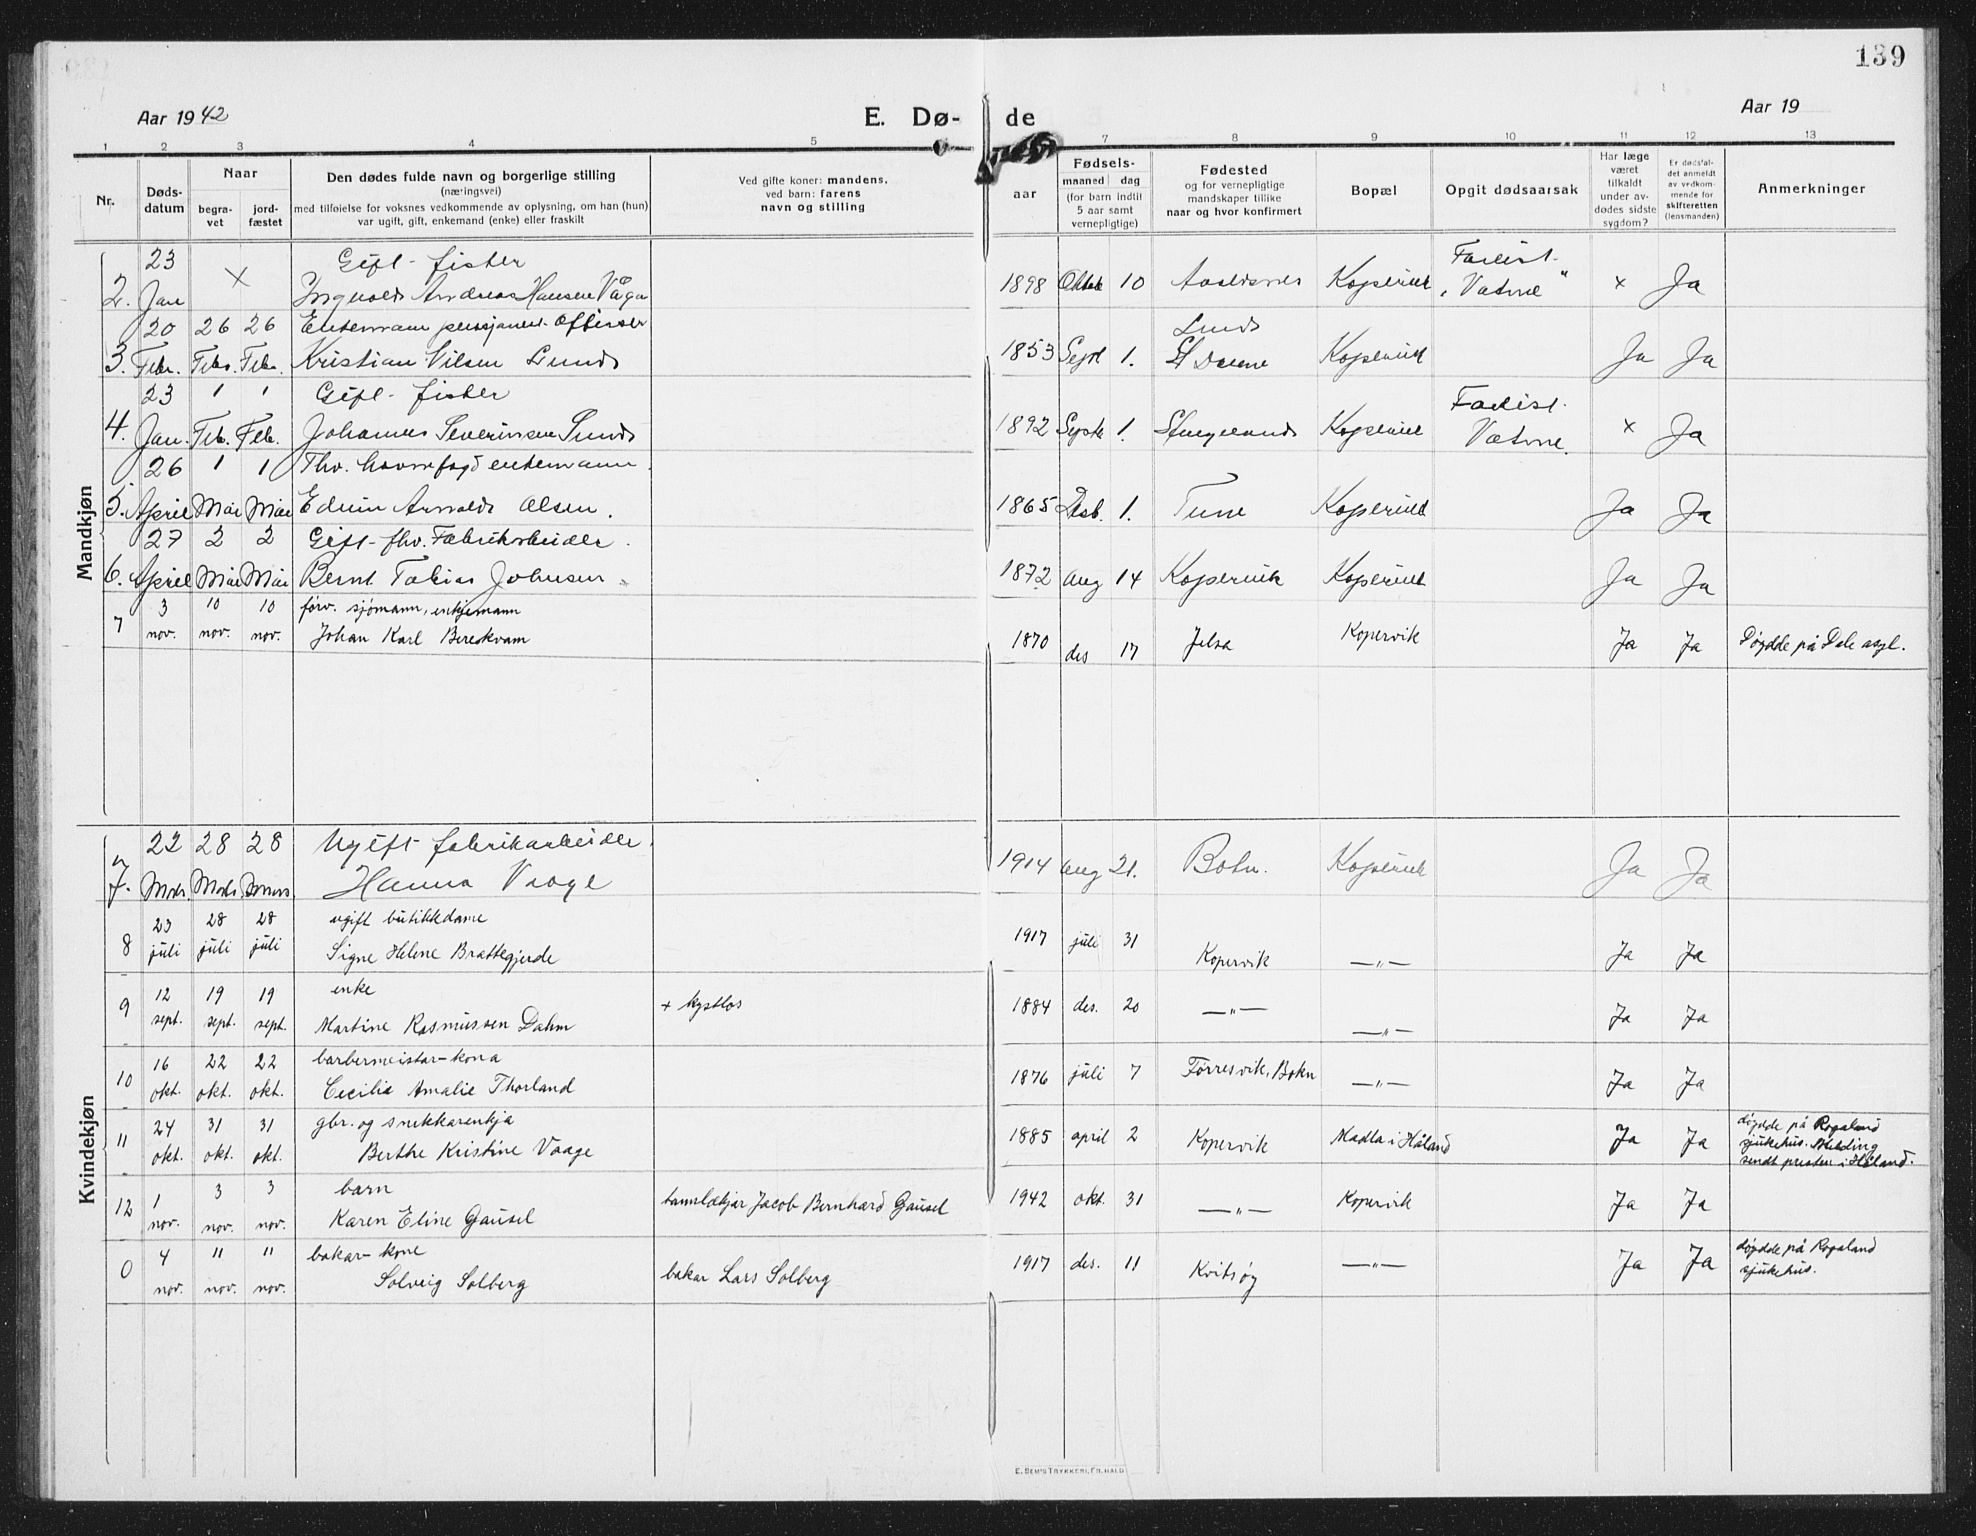 139
Aar 1942
E. Dø- de
Aar 19
1 2 3 4 5 7 8 9 10 11 12 13
Nr.
Døds-
datum
Naar
begra-
vet
jord-
fæstet
Den dødes fulde navn og borgerlige stilling
(næringsvei)
med tilføielse for voksnes vedkommende av oplysning, om han (hun)
var ugift, gift, enkemand (enke) eller fraskilt
Ved gifte koner: mandens,
ved barn: farens
navn og stilling
aar
Fødsels-
maaned dag
(for barn indtil
5 aar samt
vernepligtige)
Fødested
og for vernepligtige
mandskaper tillike
naar og hvor konfirmert
Bopæl
Opgit dødsaarsak
Har læge
været
tilkaldt
under av-
dødes sidste
sygdom?
Er dødsfal-
det anmeldt
av vedkom-
mende for
skifteretten
(lensmanden)
Anmerkninger
Mandkjøn
23 Gift - fisker Forlist
2. Jan x Ingvald Andreas Hansen Våga 1898 10 Kopervik x Ja
20 26 26 Enkemann
3. Febr. Febr. Febr. Kristian Nilsen Lund 1853 Sept 1. Kopervik Ja Ja
23 1 1 Gift - fisker Forlist.
4. Jan. Feb. Feb. Johannes Severinsen Sund 1892 Septb 1. Kopervik x Ja
26 1 1 Fhv. havnefogd enkemann
5. April Mai Mai Edvin Arnold Olsen. 1865 Desb. 1. Tune Kopervik Ja Ja
27 2 2 Gift - fhv. Fabrikarbeider.
6. April Mai Mai Bernt Tobias Johnsen. 1872 Aug 14 Kopervik Kopervik Ja Ja
3 10 10 forv. sjømann, enkjemann
7 nov. nov. nov. Johan Karl Bereskvam 1870 des 17 Jelsa Kopervik Ja Ja Døydde på Dale asyl.
Kvindekjøn
22 28 28 Ugift fabrikarbeider.
7. Hanna Vaage 1914 Aug 21. Bokn. Kopervik Ja Ja
23 28 28 ugift butikkdame
8 juli juli juli Signe Helene Brattegjerde 1917 juli 31 Kopervik —"— Ja Ja
12 19 19 enke
9 sept. sept. sept. Martine Rasmussen Dahm + kystlos 1884 des. 20 —"— —"— Ja Ja
16 22 22 barbermeistar-kona
10 okt. okt. okt. Cecilie Amalie Thorland 1876 juli 7 Førresvik, Bokn —"— Ja Ja
24 31 31 gbr. og snikkarenkja
11 okt. okt. okt. Berthe Kristine Vaage 1885 april 2 Kopervik Madla i Håland Ja Ja døydde på Rogaland
sjukehus. Melding
sendt presten i Håland.
1 3 3 barn
12 nov. nov. nov. Karen Eline Gausel tannlækjar Jacob Bernhard Gausel 1942 okt. 31 —"— Kopervik Ja Ja
4 11 11 bakar-kone
0 nov. nov. nov. Solveig Solberg bakar Lars Solberg 1917 des. 11 Kvitsøy —"— Ja Ja døydde på Rogaland
sjukehus.
E. SEM'S TRYKKERI, FR.HALD